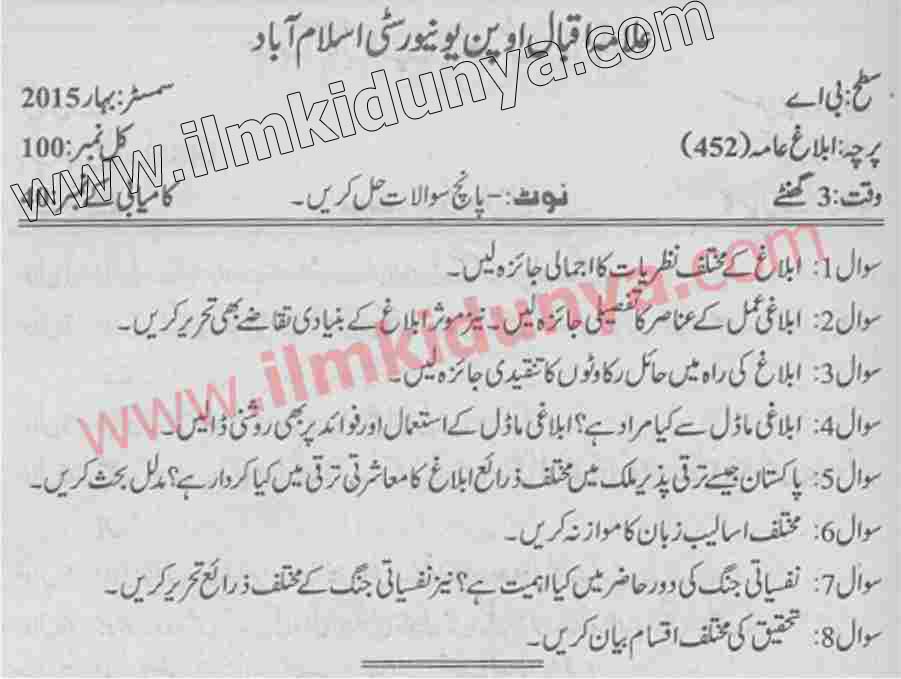 علامہ اقبال اوپن یونیورسٹی اسلام آباد
سطح: بی اے
سمسٹر: بہار 2015
پرچہ: ابلاغ عامہ (452)
کل نمبر: 100
وقت: 3 گھنٹے
نوٹ:- پانچ سوالات حل کریں۔
کامیابی کے نمبر: 40
www.ilmkidunya.com
سوال 1: ابلاغ کے مختلف نظریات کا اجمالی جائزہ لیں۔
سوال 2: ابلاغی عمل کے عناصر کا تفصیلی جائزہ لیں۔ نیز موثر ابلاغ کے بنیادی تقاضے بھی تحریر کریں۔
سوال 3: ابلاغ کی راہ میں حائل رکاوٹوں کا تنقیدی جائزہ لیں۔
سوال 4: ابلاغی ماڈل سے کیا مراد ہے؟ ابلاغی ماڈل کے استعمال اور فوائد پر بھی روشنی ڈالیں۔
سوال 5: پاکستان جیسے ترقی پذیر ملک میں مختلف ذرائع ابلاغ کا معاشرتی ترقی میں کیا کردار ہے؟ مدلل بحث کریں۔
سوال 6: مختلف اسالیب زبان کا موازنہ کریں۔
سوال 7: نفسیاتی جنگ کی دور حاضر میں کیا اہمیت ہے؟ نیز نفسیاتی جنگ کے مختلف ذرائع تحریر کریں۔
سوال 8: تحقیق کی مختلف اقسام بیان کریں۔
www.ilmkidunya.com